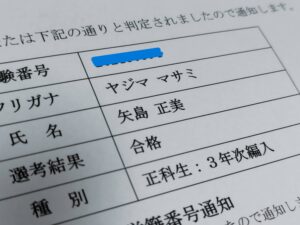 たは下記の通りと判定されましたので通知します。
験番号
フリガナ ヤジマ マサミ
氏 名 矢島 正美
選考結果 合格
種 別 正科生：3年次編入
学籍番号通知
ましたので通知しま